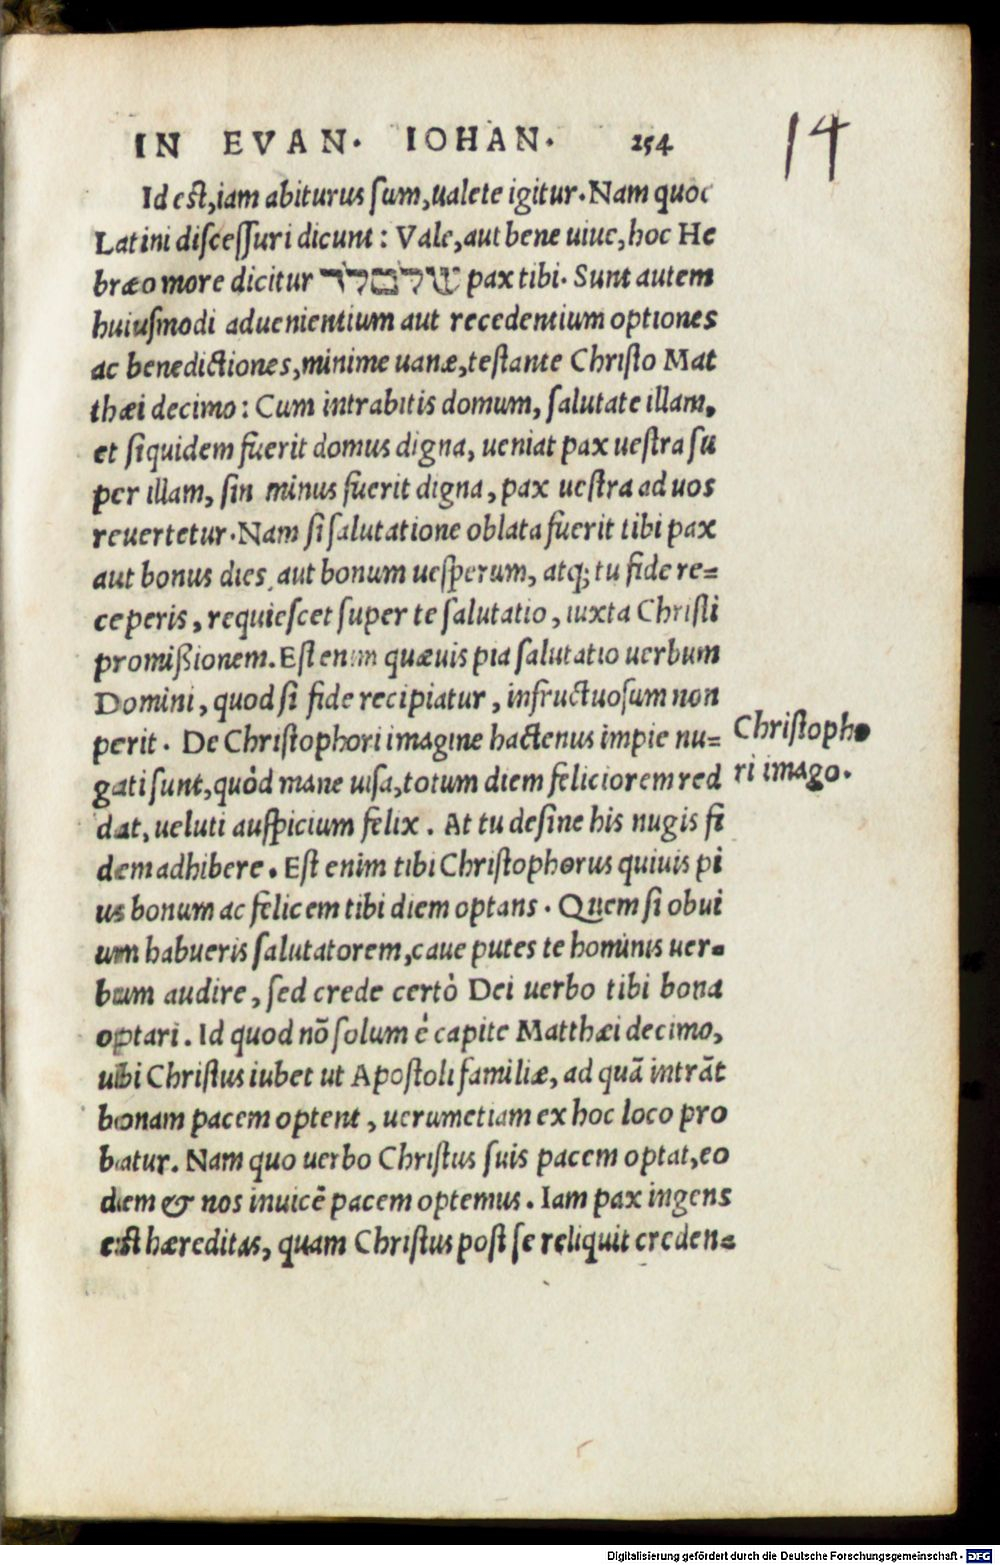 IN EVAN. IOHAN. 254
14
Id est, iam abiturus sum, ualete igitur. Nam quoc
Latini discessuri dicunt: Vale, aut bene uiue, hoc He
bræo more dicitur שלםלך pax tibi. Sunt autem
huiusmodi aduenientium aut recedentium optiones
ac benedictiones, minime uanæ, testante Christo Mat
thæi decimo: Cum intrabitis domum, salutate illam,
et siquidem fuerit domus digna, ueniat pax uestra su
per illam, sin minus fuerit digna, pax uestra ad uos
reuertetur. Nam si salutatione oblata fuerit tibi pax
aut bonus dies, aut bonum uesperum, atq; tu fide re=
ceperis, requiescet super te salutatio, iuxta Christi
promißionem. Est enim quæuis pia salutatio uerbum
Domini, quod si fide recipiatur, infructuosum non
perit. De Christophori imagine hactenus impie nu=
gati sunt, quòd mane uisa, totum diem feliciorem red
dat, ueluti auspicium felix. At tu desine his nugis fi
dem adhibere. Est enim tibi Christophorus quiuis pi
us bonum ac felicem tibi diem optans. Quem si obui
um habueris salutatorem, caue putes te hominis uer=
bum audire, sed crede certò Dei uerbo tibi bona
optari. Id quod nõ solum è capite Matthæi decimo,
ubi Christus iubet ut Apostoli familiæ, ad quã intrãt
bonam pacem optent, uerumetiam ex hoc loco pro
batur. Nam quo uerbo Christus suis pacem optat, eo
dem & nos inuicẽ pacem optemus. Iam pax ingens
est hæreditas, quam Christus post se reliquit creden=
Christopho
ri imago.
Digitalisierung gefördert durch die Deutsche Forschungsgemeinschaft - DFG